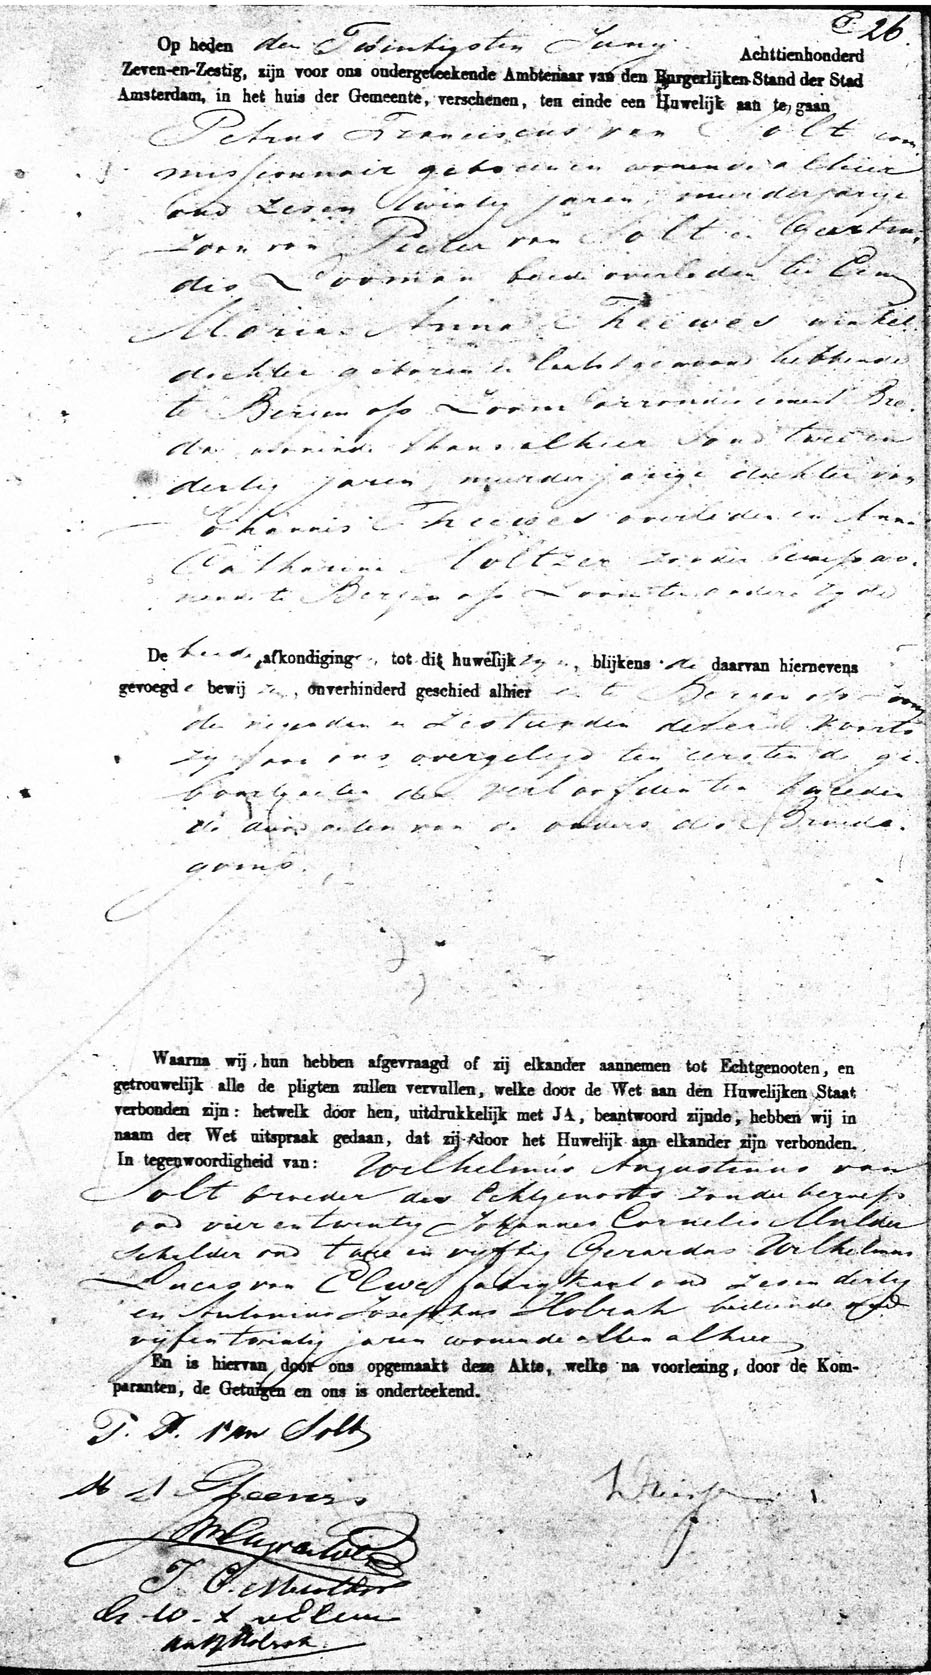 C 26.
Op heden den Twintigsten Juny Achttienhonderd
Zeven-en-Zestig, zijn voor ons ondergeteekende Ambtenaar van den Burgerlijken Stand der Stad
Amsterdam, in het huis der Gemeente, verschenen, ten einde een Huwelijk aan te gaan
Petrus Franciscus van Solt com
missionnair geboren en wonende alhier
oud zes en twintig jaren, meerderjarige
zoon van Pieter van Solt en Geertru
dis Looman beide overleden ter Eenre
Maria Anna Theewes winkel
dochter geboren en laatst gewoond hebbende
te Bergen op Zoom arrondissement Bre
da wonende thans alhier oud twee en
dertig jaren, meerderjarige dochter van
Johannis Theewes overleden en Anna
Catharina Holtzer zonder beroep wo
nende te Bergen op Zoom ter andere zyde
De beide afkondigingen, tot dit huwelijk zyn, blijkens de daarvan hiernevens
gevoegde bewijzen, onverhinderd geschied alhier en te Bergen op Zoom
den negenden en zestienden dezer voorts
zyn aan ons overgelegd ten eersten de ge
boorteacten der verloofden ten tweeden
de doodacten van de ouders des Bruide
goms.
Waarna wij hun hebben afgevraagd of zij elkander aannemen tot Echtgenooten, en
getrouwelijk alle de pligten zullen vervullen, welke door de Wet aan den Huwelijken Staat
verbonden zijn: hetwelk door hen, uitdrukkelijk met JA, beantwoord zijnde, hebben wij in
naam der Wet uitspraak gedaan, dat zij door het Huwelijk aan elkander zijn verbonden.
In tegenwoordigheid van: Wilhelmus Augustinus van
Solt broeder des Echtgenoots zonder beroep
oud vier en twintig Johannes Cornelis Mulder
schilder oud twee en vyftig Gerardus Wilhelmus
Lucas van Elwe oud zes en dertig
en Antonius Josephus Hobrah bediende oud
vijf en twintig jaren wonende allen alhier
En is hiervan door ons opgemaakt deze Akte, welke na voorlezing, door de Kom-
paranten, de Getuigen en ons is onderteekend.
P. F. van Solt
M A Theewes
WA van Solt
J. C. Mulder
G. W. L. v Elwe
Ant J Hobrah